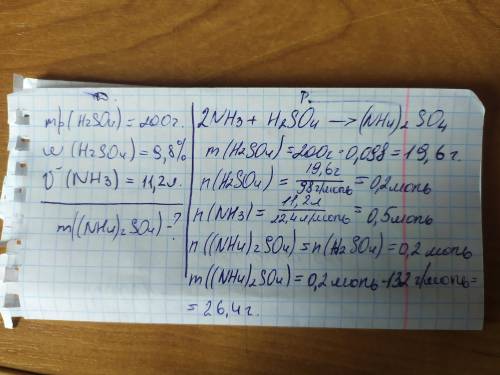 D.
mp(H2SO4) = 200г.
w(H2SO4) = 9,8%
V(NH3) = 11,2л.
m((NH4)2SO4) - ?
P.
2NH3 + H2SO4 → (NH4)2SO4
m(H2SO4) = 200г · 0,098 = 19,6г.
n(H2SO4) = 19,6г / 98г/моль = 0,2моль
n(NH3) = 11,2л / 22,4л/моль = 0,5моль
n((NH4)2SO4) = n(H2SO4) = 0,2 моль
m((NH4)2SO4) = 0,2моль · 132г/моль =
= 26,4г.